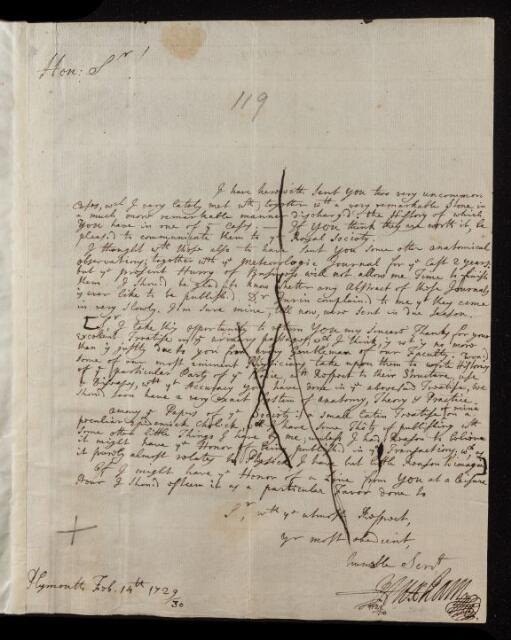 Hon: Sr!
119
I have herewith sent You two very uncommon
Cases, wch I very lately met wth, together with a very remarkable Stone, in
a much more remarkable manner discharg'd; the History of which
You have in one of ye Cases; — If You think they are worth it, be
pleas'd to communicate them to ye Royal Society.
I thought wth these also to have sent You some other anatomical
observations, together with ye Meteorologic Journal for ye last 2 years,
but ye present Hurry of Business will not allow me Time to finish
them. I should be glad to know whether any Abstract of those Journals
is ever like to be publish'd. Dr Jurin complain'd to me yt they came
in very slowly. I'm sure mine, till now, were sent in due Season.
Sr, I take this opportunity to return You my Sincerest Thanks for your
excellent Treatise on ye urinary passages, wch I think, is wt is no more
than is justly due to you from every Gentleman of our Faculty. Wou'd
some of our most eminent Physicians take upon them to write History
of a particular Party of Physic, wth Respect to their Structure, use
& Diseases, wth ye Accuracy you have done in ye aforesaid Treatise, we
should soon have a very exact System of anatomy, Theory & Practice.
among ye Papers of ye Society is a Small Latin Treatise of mine on a
peculiar Epidemick Cholick, wch I have some Thots of publishing wth
Some other little Things I have by me, unless I had Reason to believe
it might have ye Honor of being publish'd in ye Transactions; wch as
it purely almost relates to Physick I have but little Reason to imagine
If I might have ye Honor of a Line from You at a leisure
Hour I should esteem it as a particular Favor done to
Sr, wth ye utmost Respect,
yr most obedient,
humble Servt
J Huxham
Plymouth Feb. 14th 1729/30